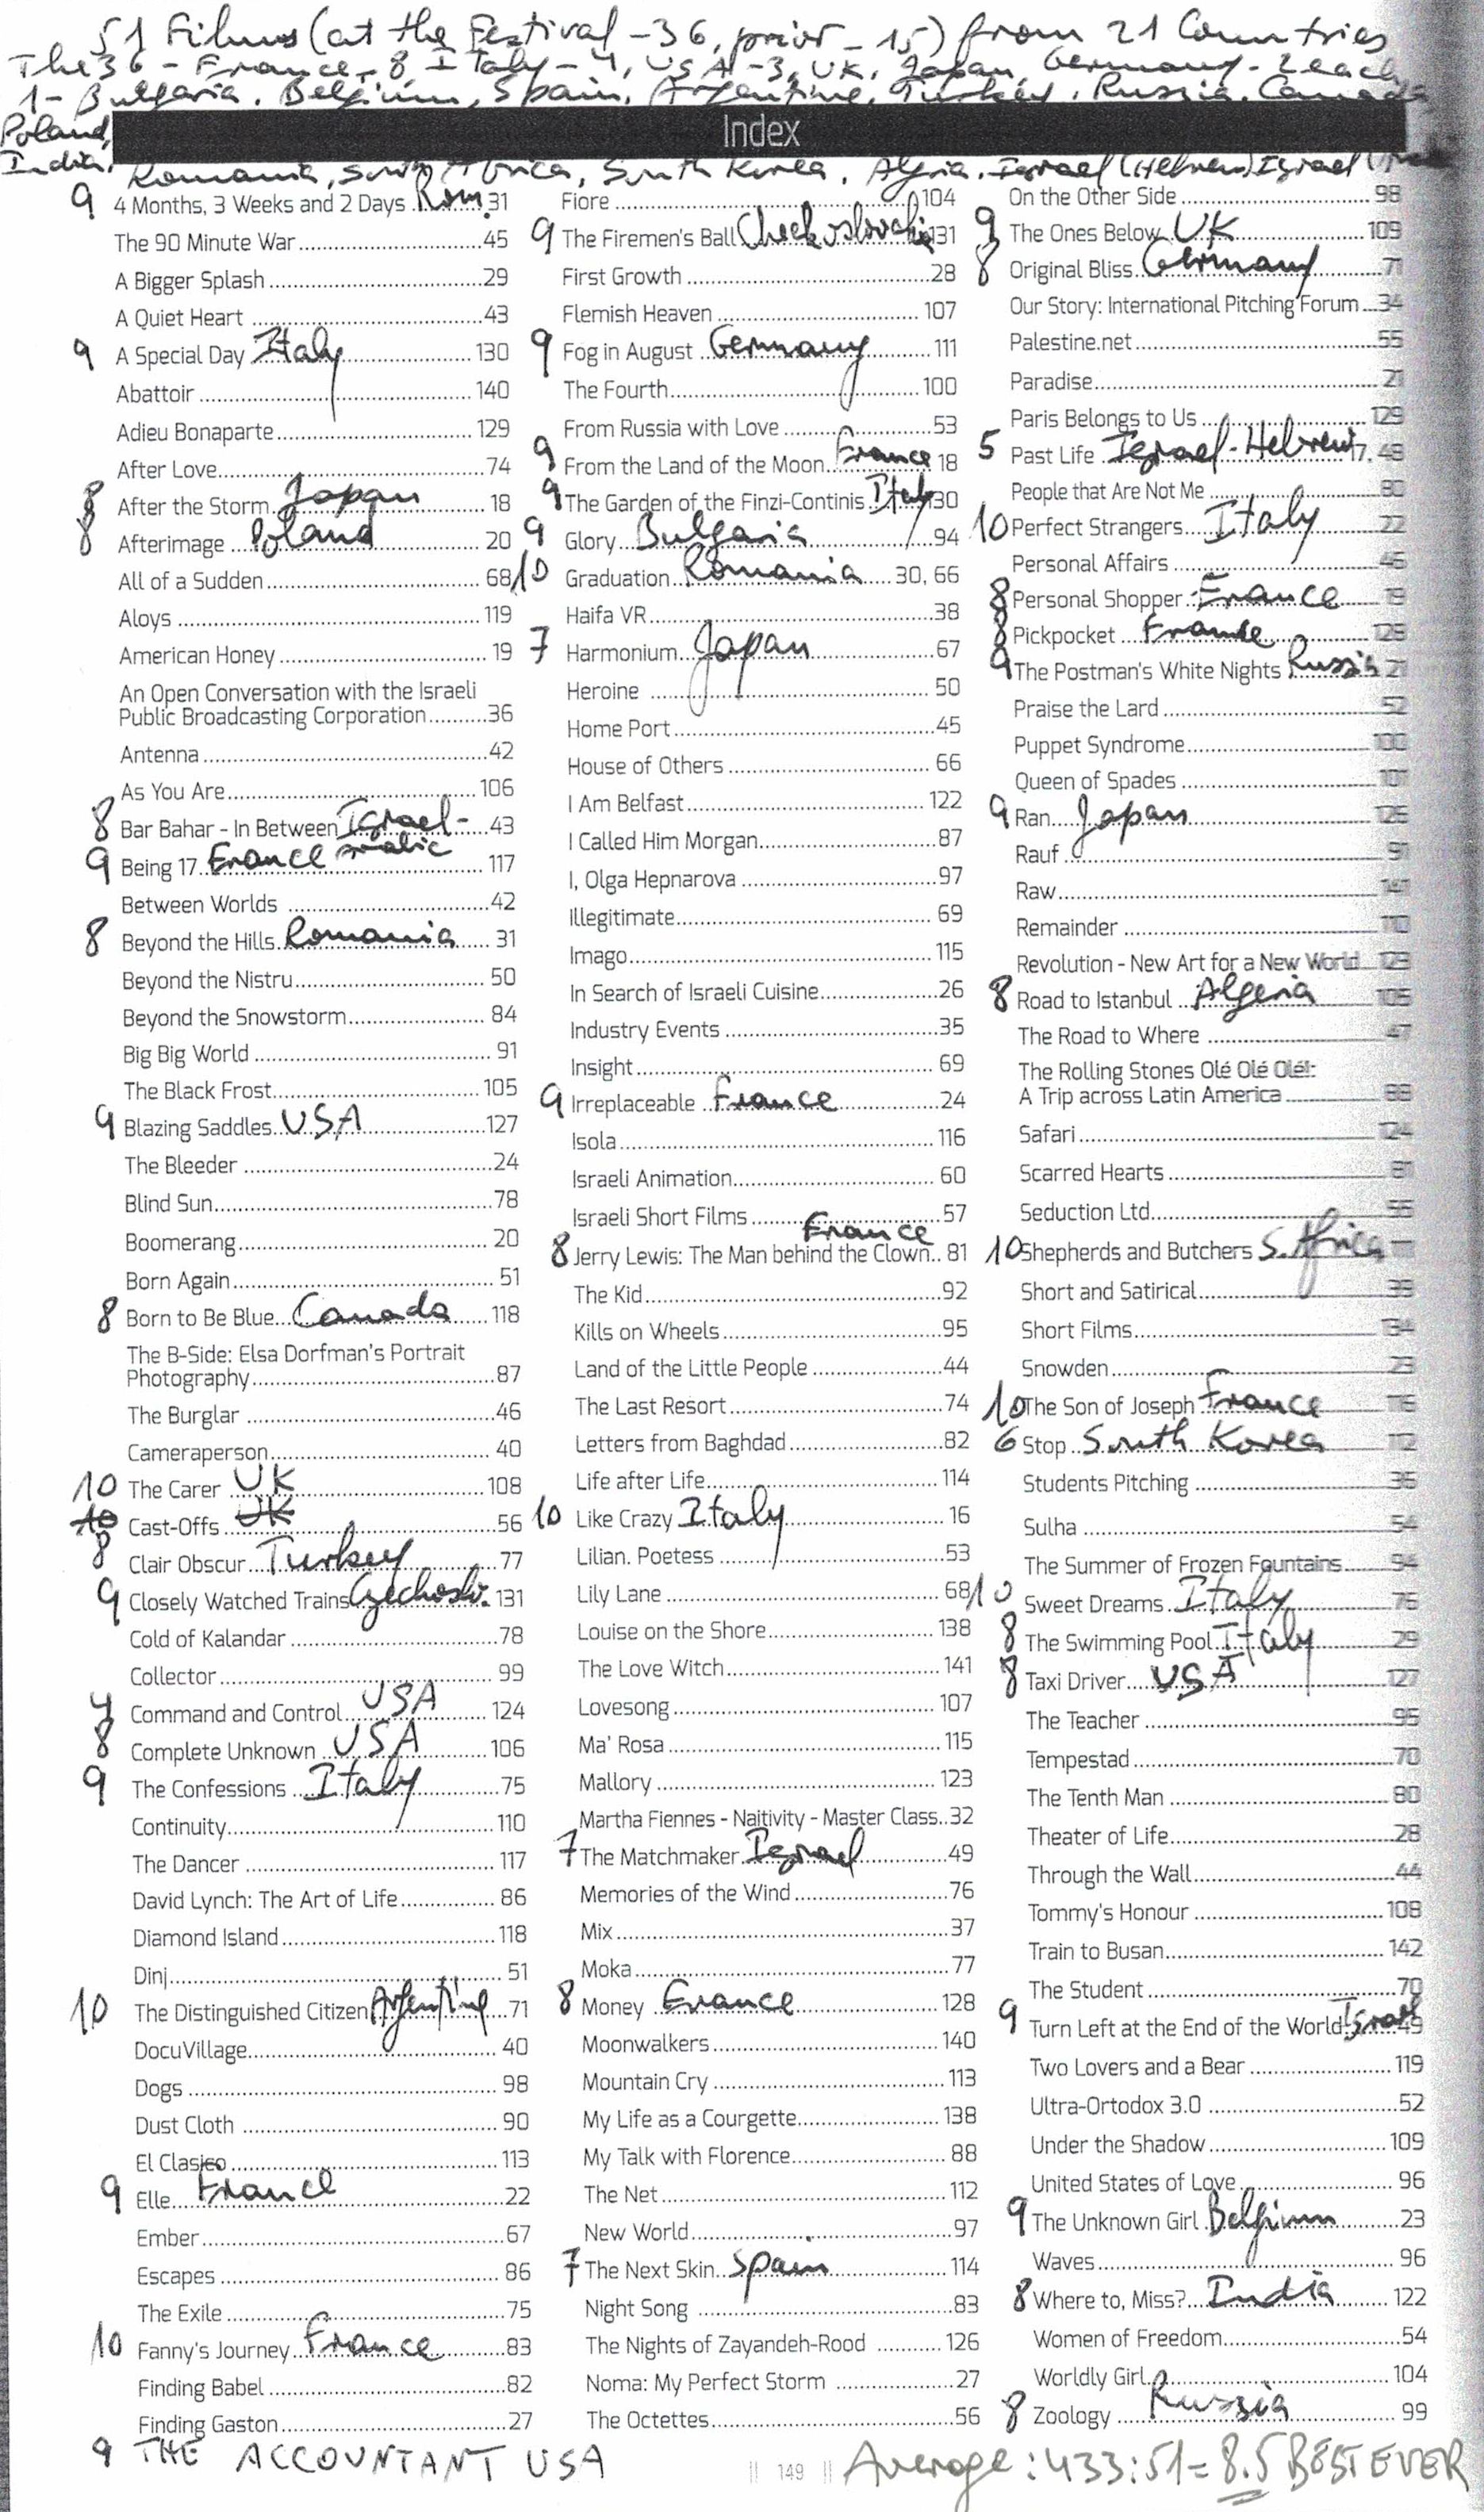 51 Films (at the Festival - 36, prior - 15) from 21 Countries
The 36 - France - 8, Italy - 4, USA - 3, UK, Japan, Germany - 2 each
1 - Bulgaria, Belgium, Spain, Argentine, Turkey, Russia, Canada
Poland,
Index
India, Romania, South Africa, South Korea, Algeria, Israel (Hebrew) Israel
9 4 Months, 3 Weeks and 2 Days Rom. 31
The 90 Minute War 45
A Bigger Splash 29
A Quiet Heart 43
9 A Special Day Italy 130
Abattoir 140
Adieu Bonaparte 129
After Love 74
8 After the Storm Japan 18
8 Afterimage Poland 20
All of a Sudden 68
Aloys 119
American Honey 19
An Open Conversation with the Israeli
Public Broadcasting Corporation 36
Antenna 42
As You Are 106
8 Bar Bahar - In Between Israel - 43
Arabic
9 Being 17 France 117
Between Worlds 42
8 Beyond the Hills Romania 31
Beyond the Nistru 50
Beyond the Snowstorm 84
Big Big World 91
The Black Frost 105
9 Blazing Saddles USA 127
The Bleeder 24
Blind Sun 78
Boomerang 20
Born Again 51
8 Born to Be Blue Canada 118
The B-Side: Elsa Dorfman's Portrait
Photography 87
The Burglar 46
Cameraperson 40
10 The Carer UK 108
10 Cast-Offs UK 56
8 Clair Obscur Turkey 77
9 Closely Watched Trains Czechoslv. 131
Cold of Kalandar 78
Collector 99
4 Command and Control USA 124
8 Complete Unknown USA 106
9 The Confessions Italy 75
Continuity 110
The Dancer 117
David Lynch: The Art of Life 86
Diamond Island 118
Dinj 51
10 The Distinguished Citizen Argentine 71
DocuVillage 40
Dogs 98
Dust Cloth 90
El Clasico 113
9 Elle France 22
Ember 67
Escapes 86
The Exile 75
10 Fanny's Journey France 83
Finding Babel 82
Finding Gaston 27
9 THE ACCOUNTANT USA
Fiore 104
9 The Firemen's Ball Checkoslovakia 131
First Growth 28
Flemish Heaven 107
9 Fog in August Germany 111
The Fourth 100
From Russia with Love 53
9 From the Land of the Moon France 18
9 The Garden of the Finzi-Continis Italy 130
9 Glory Bulgaria 94
10 Graduation Romania 30, 66
Haifa VR 38
7 Harmonium Japan 67
Heroine 50
Home Port 45
House of Others 66
I Am Belfast 122
I Called Him Morgan 87
I, Olga Hepnarova 97
Illegitimate 69
Imago 115
In Search of Israeli Cuisine 26
Industry Events 35
Insight 69
9 Irreplaceable France 24
Isola 116
Israeli Animation 60
Israeli Short Films 57
France
8 Jerry Lewis: The Man behind the Clown 81
The Kid 92
Kills on Wheels 95
Land of the Little People 44
The Last Resort 74
Letters from Baghdad 82
Life after Life 114
10 Like Crazy Italy 16
Lilian. Poetess 53
Lily Lane 68
Louise on the Shore 138
The Love Witch 141
Lovesong 107
Ma' Rosa 115
Mallory 123
Martha Fiennes - Naitivity - Master Class 32
7 The Matchmaker Israel 49
Memories of the Wind 76
Mix 37
Moka 77
8 Money France 128
Moonwalkers 140
Mountain Cry 113
My Life as a Courgette 138
My Talk with Florence 88
The Net 112
New World 97
7 The Next Skin Spain 114
Night Song 83
The Nights of Zayandeh-Rood 126
Noma: My Perfect Storm 27
The Octettes 56
On the Other Side 98
9 The Ones Below UK 109
8 Original Bliss Germany 71
Our Story: International Pitching Forum 34
Palestine.net 55
Paradise 21
Paris Belongs to Us 129
5 Past Life Israel-Hebrew 17, 48
People that Are Not Me 80
10 Perfect Strangers Italy 22
Personal Affairs 46
8 Personal Shopper France 19
8 Pickpocket France 128
9 The Postman's White Nights Russia 21
Praise the Lard 52
Puppet Syndrome 100
Queen of Spades 101
9 Ran Japan 126
Rauf 91
Raw 141
Remainder 110
Revolution - New Art for a New World 123
8 Road to Istanbul Algeria 105
The Road to Where 47
The Rolling Stones Olé Olé Olé!:
A Trip across Latin America 88
Safari 124
Scarred Hearts 67
Seduction Ltd. 55
10 Shepherds and Butchers S. Africa
Short and Satirical 39
Short Films 134
Snowden 23
10 The Son of Joseph France 116
6 Stop South Korea 112
Students Pitching 36
Sulha 54
The Summer of Frozen Fountains 94
10 Sweet Dreams Italy 76
8 The Swimming Pool Italy 29
8 Taxi Driver USA 127
The Teacher 95
Tempestad 70
The Tenth Man 80
Theater of Life 28
Through the Wall 44
Tommy's Honour 108
Train to Busan 142
The Student 70
9 Turn Left at the End of the World Israel 49
Two Lovers and a Bear 119
Ultra-Ortodox 3.0 52
Under the Shadow 109
United States of Love 96
9 The Unknown Girl Belgium 23
Waves 96
8 Where to, Miss? India 122
Women of Freedom 54
Worldly Girl 104
8 Zoology Russia 99
149
Average: 433:51 = 8.5 BEST EVER